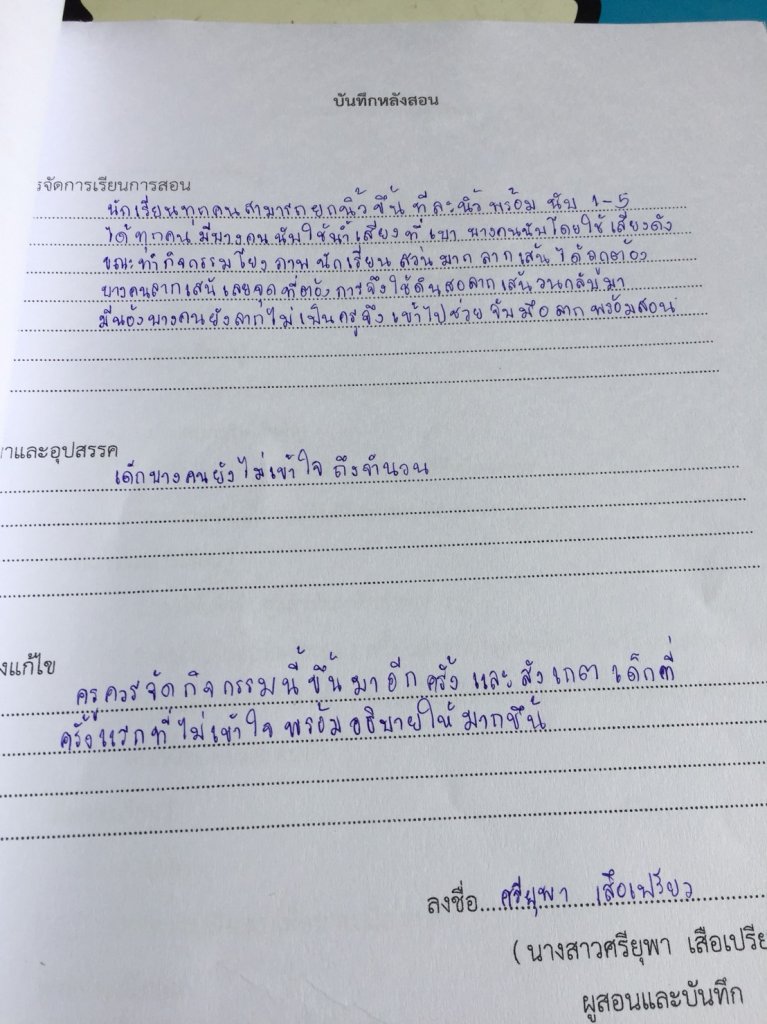 บันทึกหลังสอน
รจัดการเรียนการสอน
นักเรียนทุกคนสามารถยกนิ้วขึ้น ทีละนิ้ว พร้อม นับ 1-5
ได้ทุกคน มีบางคน นับใช้น้ำเสียงที่เบา บางคนนับโดยใช้เสียงดัง
ขณะทำกิจกรรมโยงภาพ นักเรียน ส่วนมาก ลากเส้นได้ถูกต้อง
บางคนลากเส้นเลยจุดที่ต้องการจึงใช้ดินสอลากเส้นวนกลับมา
มีน้องบางคนยังลากไม่เป็นครูจึงเข้าไปช่วย จับมือลากพร้อมสอน
าและอุปสรรค
เด็กบางคนยังไม่เข้าใจ ถึงจำนวน
งแก้ไข
ครูควรจัดกิจกรรมนี้ขึ้นมาอีกครั้ง และสังเกตเด็กที่
ครั้งแรกที่ไม่เข้าใจ พร้อมอธิบายให้มากขึ้น
ลงชื่อ ศรียุพา เสือเปรียว
( นางสาวศรียุพา เสือเปรีย
ผู้สอนและบันทึก